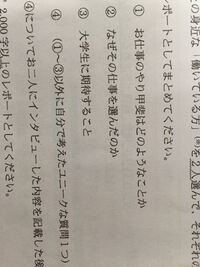 の身近な「働いている方」(※)を2人選んで、それぞれの
ポートとしてまとめてください。
① お仕事のやり甲斐はどのようなことか
② なぜその仕事を選んだのか
③ 大学生に期待すること
④ (①～③以外に自分で考えたユニークな質問1つ)
④についてお二人にインタビューした内容を記載した後
2,000字以上のレポートとしてください。